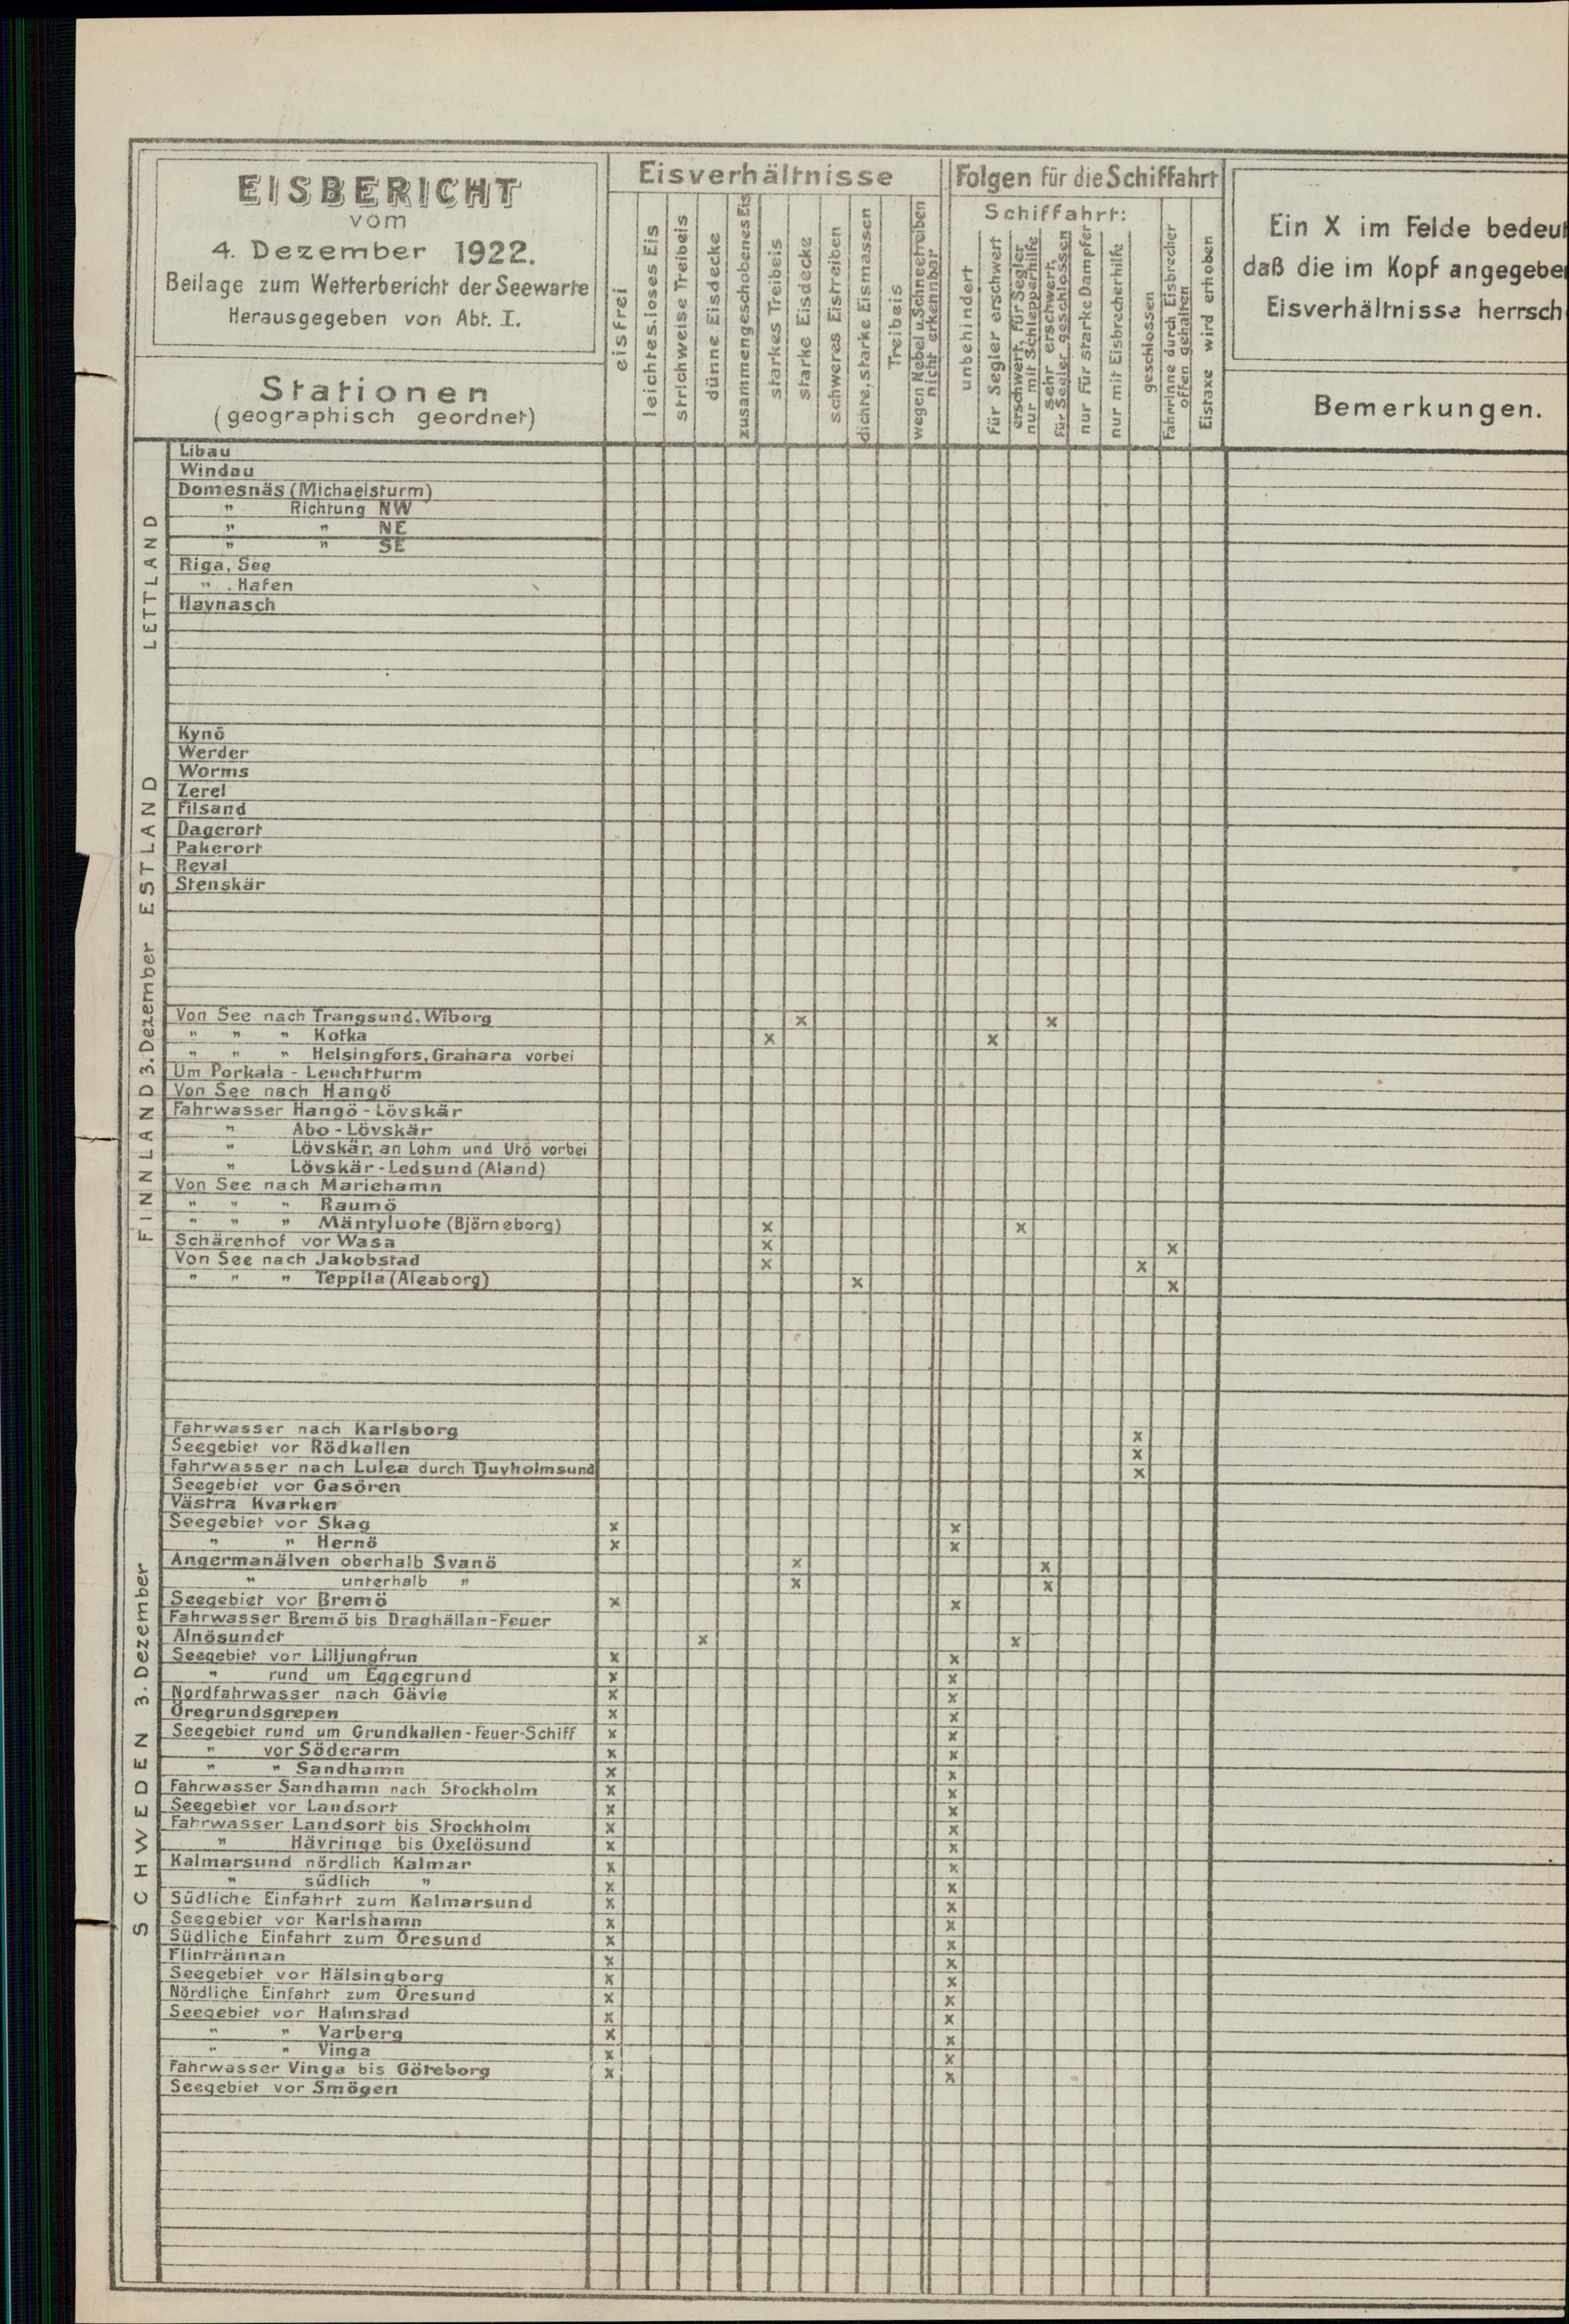 EISBERICHT
vom
4. Dezember 1922.
Beilage zum Wetterbericht der Seewarte
Herausgegeben von Abt. I.
Stationen
(geographisch geordnet)
Eisverhältnisse
eisfrei
leichtes.loses Eis
strichweise Treibeis
dünne Eisdecke
zusammengeschobenes Eis
starkes Treibeis
starke Eisdecke
schweres Eistreiben
dichte, starke Eismassen
Treibeis
wegen Nebel u. Schneetreiben
nicht erkennbar
Folgen für die Schiffahrt
Schiffahrt:
unbehindert
für Segler erschwert
erschwert, für Segler
nur mit Schlepperhilfe
sehr erschwert,
für Segler geschlossen
nur für starke Dampfer
nur mit Eisbrecherhilfe
geschlossen
Fahrrinne durch Eisbrecher
offen gehalten
Eistaxe wird erhoben
Ein X im Felde bedeut
daß die im Kopf angegebe
Eisverhältnisse herrsch
Bemerkungen.
LETTLAND
Libau
Windau
Domesnäs (Michaelsturm)
" Richtung NW
" " NE
" " SE
Riga, See
" . Hafen
Haynasch
ESTLAND
Kynö
Werder
Worms
Zerel
Filsand
Dagerort
Pakerort
Reval
Stenskär
FINNLAND 3. Dezember
Von See nach Trangsund, Wiborg x x
" " " Kotka x x
" " " Helsingfors, Grahara vorbei
Um Porkala - Leuchtturm
Von See nach Hangö
Fahrwasser Hangö - Lövskär
" Abo - Lövskär
" Lövskär, an Lohm und Utö vorbei
" Lövskär - Ledsund (Aland)
Von See nach Mariehamn
" " " Raumö
" " " Mäntyluote (Björneborg) x x
Schärenhof vor Wasa x x
Von See nach Jakobstad x x
" " " Teppila (Aleaborg) x x
SCHWEDEN 3. Dezember
Fahrwasser nach Karlsborg x
Seegebiet vor Rödkallen x
Fahrwasser nach Lulea durch Tjuvholmsund x
Seegebiet vor Gasören
Västra Kvarken
Seegebiet vor Skag x x
" " Hernö x x
Angermanälven oberhalb Svanö x x
" unterhalb " x x
Seegebiet vor Bremö x x
Fahrwasser Bremö bis Draghällan-Feuer
Alnösundet x x
Seegebiet vor Lilljungfrun x x
" rund um Eggegrund x x
Nordfahrwasser nach Gävle x x
Öregrundsgrepen x x
Seegebiet rund um Grundkallen-Feuer-Schiff x x
" vor Söderarm x x
" " Sandhamn x x
Fahrwasser Sandhamn nach Stockholm x x
Seegebiet vor Landsort x x
Fahrwasser Landsort bis Stockholm x x
" Hävringe bis Oxelösund x x
Kalmarsund nördlich Kalmar x x
" südlich " x x
Südliche Einfahrt zum Kalmarsund x x
Seegebiet vor Karlshamn x x
Südliche Einfahrt zum Öresund x x
Flintrännan x x
Seegebiet vor Hälsingborg x x
Nördliche Einfahrt zum Öresund x x
Seegebiet vor Halmstad x x
" " Varberg x x
" " Vinga x x
Fahrwasser Vinga bis Göteborg x x
Seegebiet vor Smögen